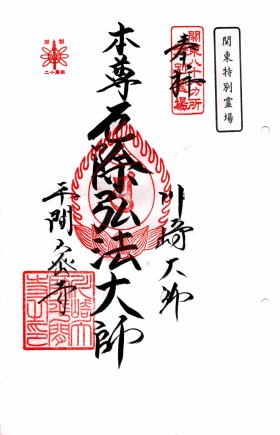 関東特別霊場
関東八十八カ所
霊場
奉拝
川崎大師
本尊厄除弘法大師
平間寺
二十周年